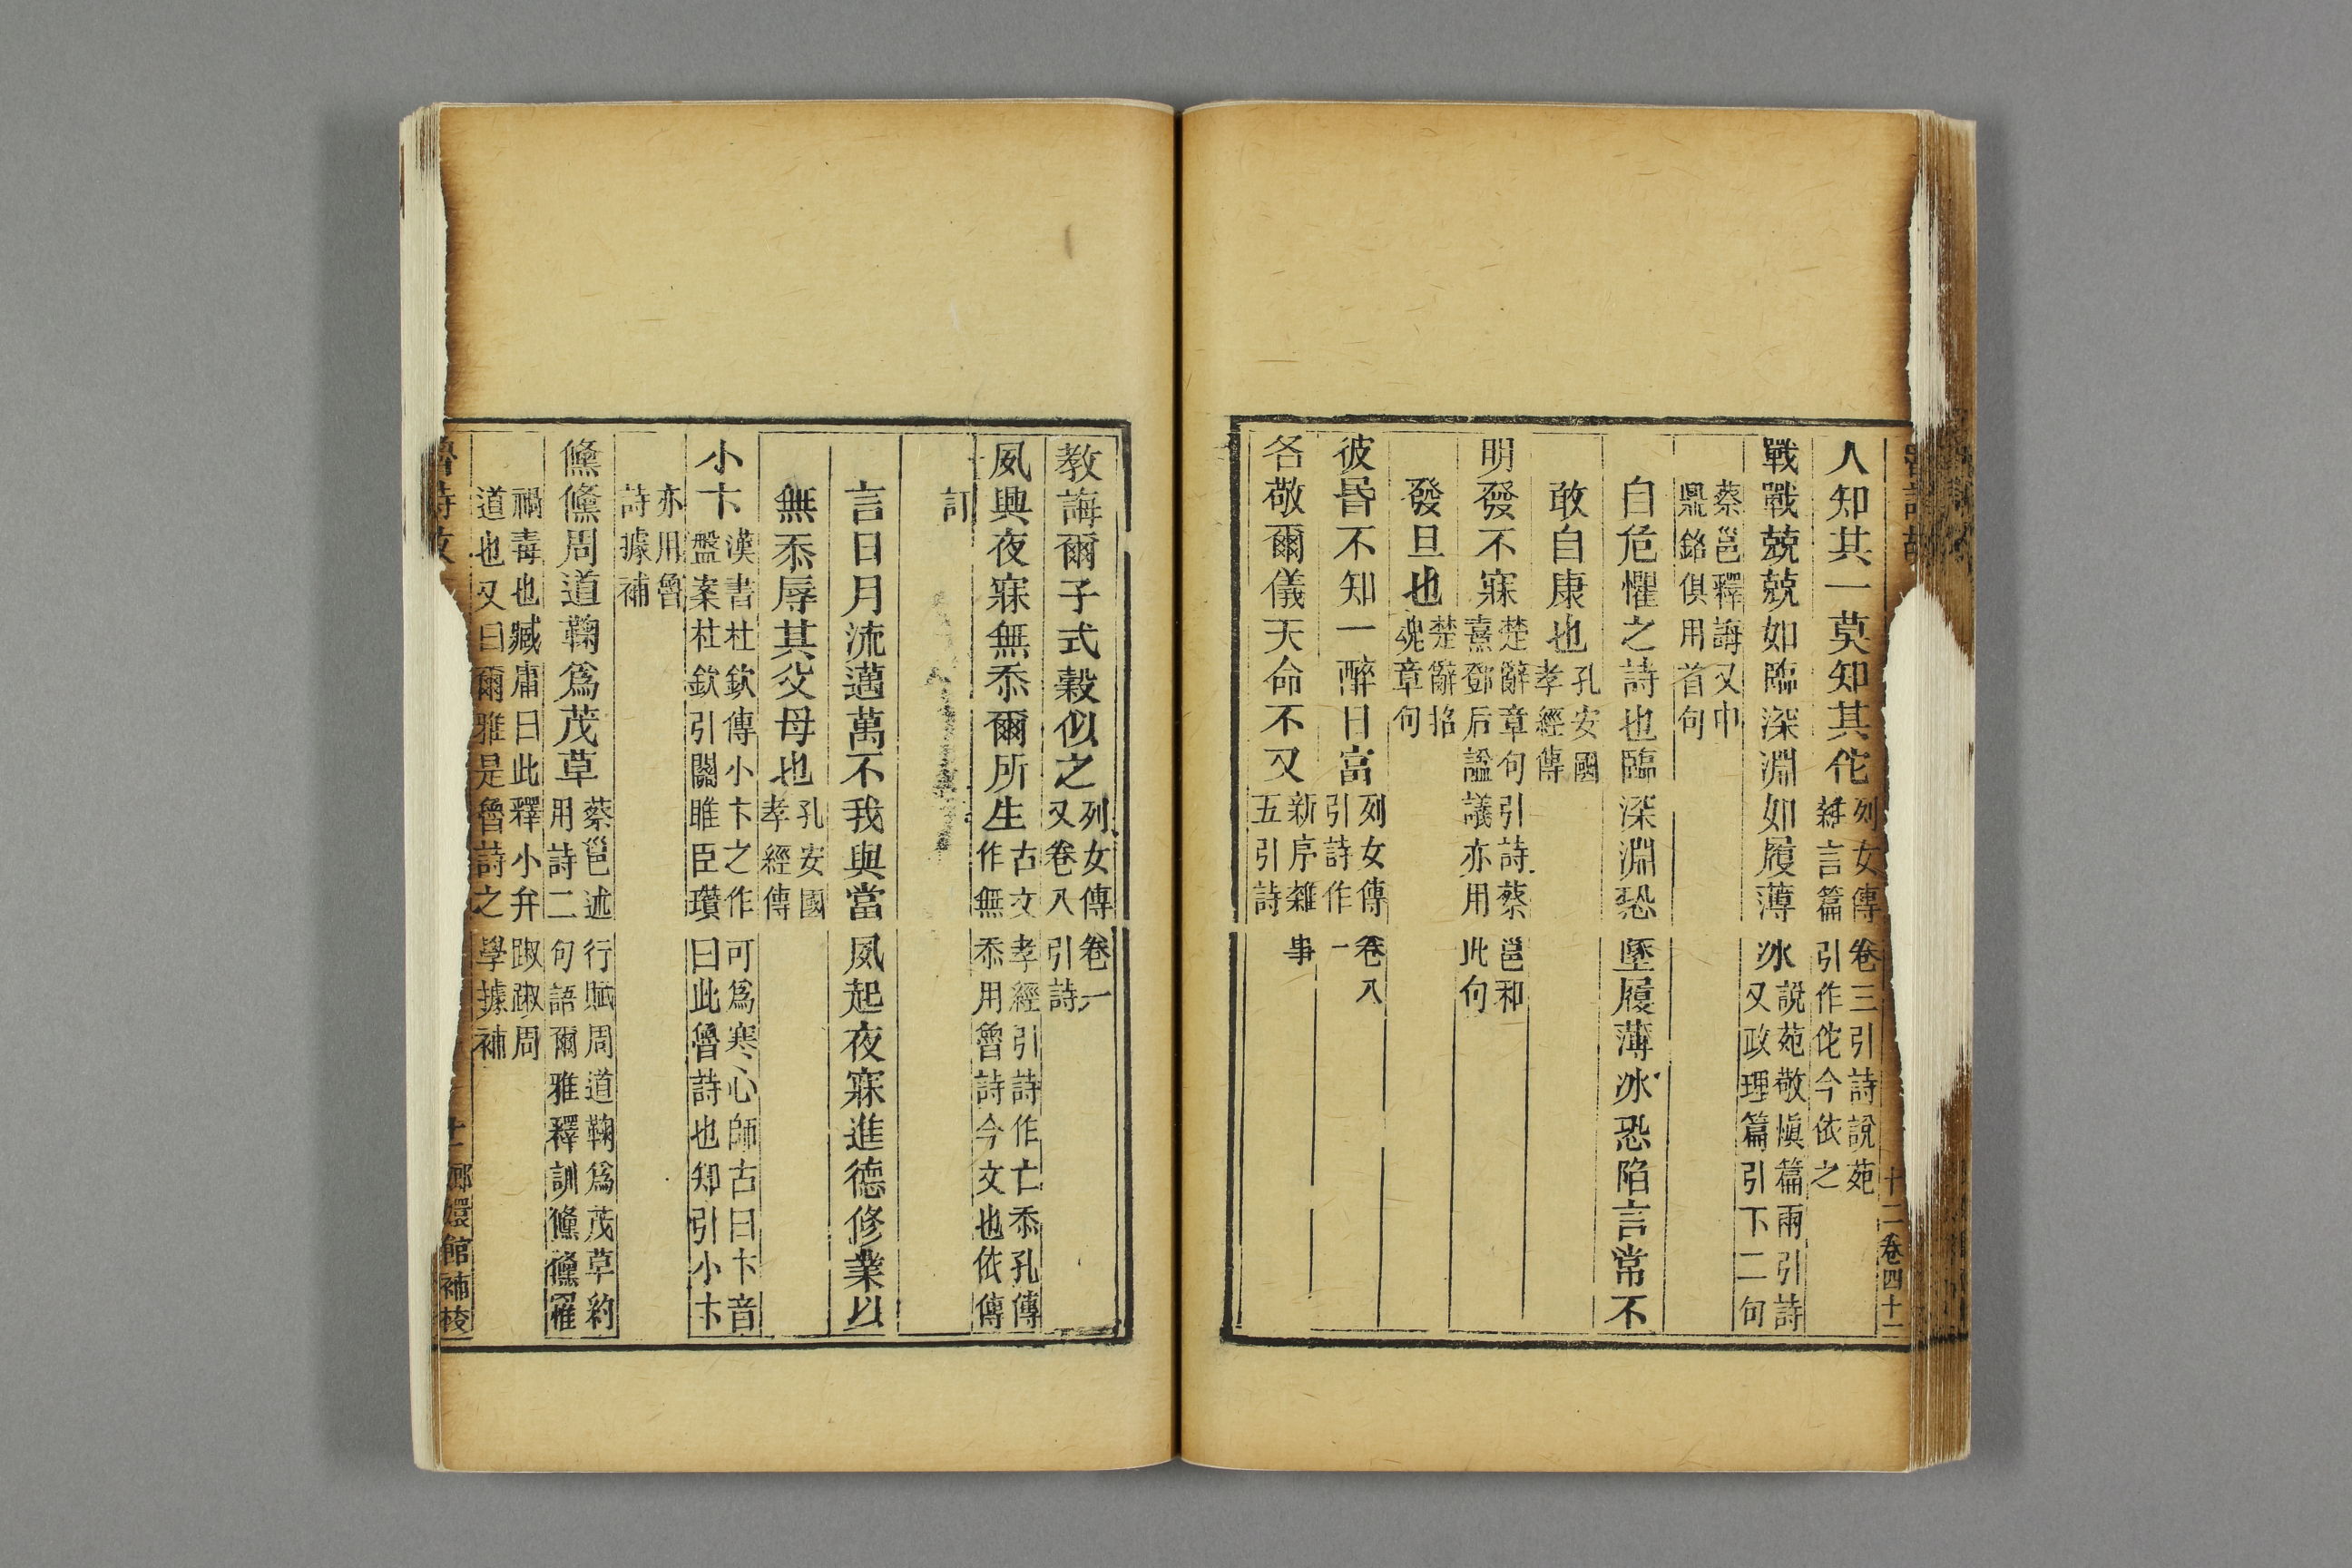 人知其一莫知其佗列女傳卷三引詩說苑
雜言篇引作佗今依之
戰戰兢兢如臨深淵如履薄冰說苑敬愼篇兩引詩
又政理篇引下二句
蔡邕釋誨又巾
鼎銘俱用首句
自危懼之詩也臨深淵恐墜履薄冰恐陷言常不
敢自康也孔安國
孝經傳
明發不寐楚辭章句引詩蔡邕和
熹鄧后謚議亦用此句
發旦也楚辭招
魂章句
彼昬不知一醉日富列女傳卷八
引詩作一
各敬爾儀天命不又新序雜事
五引詩
十二卷四十一
教誨爾子式穀似之列女傳卷一
又卷八引詩
夙興夜寐無忝爾所生古文孝經引詩作亡忝孔傳
作無忝用魯詩今文也依傳
訂
言日月流邁萬不我與當夙起夜寐進德修業以
無忝辱其父母也孔安國
孝經傳
小卞漢書杜欽傳小卞之作可爲寒心師古曰卞音
盤案杜欽引關雎臣瓚曰此魯詩也知引小卞
亦用魯
詩據補
儵儵周道鞠爲茂草蔡邕述行賦周道鞠爲茂草約
用詩二句語爾雅釋訓儵儵罹
禍毒也臧庸曰此釋小弁踧踧周
道也又曰爾雅是魯詩之學據補
嫏嬛館補校